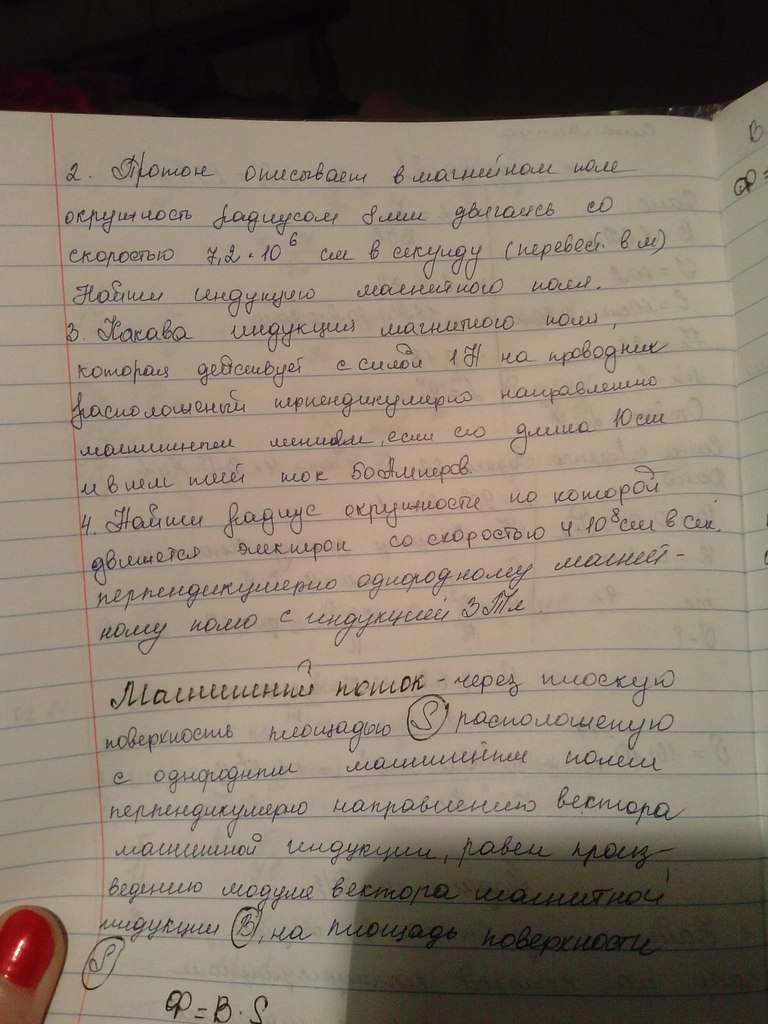 2. Протон описывает в магнитном поле
окружность радиусом 8 мм двигаясь со
скоростью 7,2 · 10⁶ см в секунду (перевест. в м)
Найти индукцию магнитного поля.
3. Какава индукция магнитного поля,
которая действует с силой 1Н на проводник
расположеный перпендикулярно направлению
магнитным линиям, если его длина 10 см
и в нем течёт ток 50 Амперов.
4. Найти радиус окружности по которой
движется электрон со скоростью 4·10⁸ см в сек.
перпендикулярно однородному магнит-
ному полю с индукцией 3 Тл.
Магнитный поток - через плоскую
поверхность площадью S расположеную
с однородным магнитным полем
перпендикулярно направлению вектора
магнитной индукции, равен произ-
ведению модуля вектора магнитной
индукции B, на площадь поверхности
S
Ф = B · S
В
Ф=